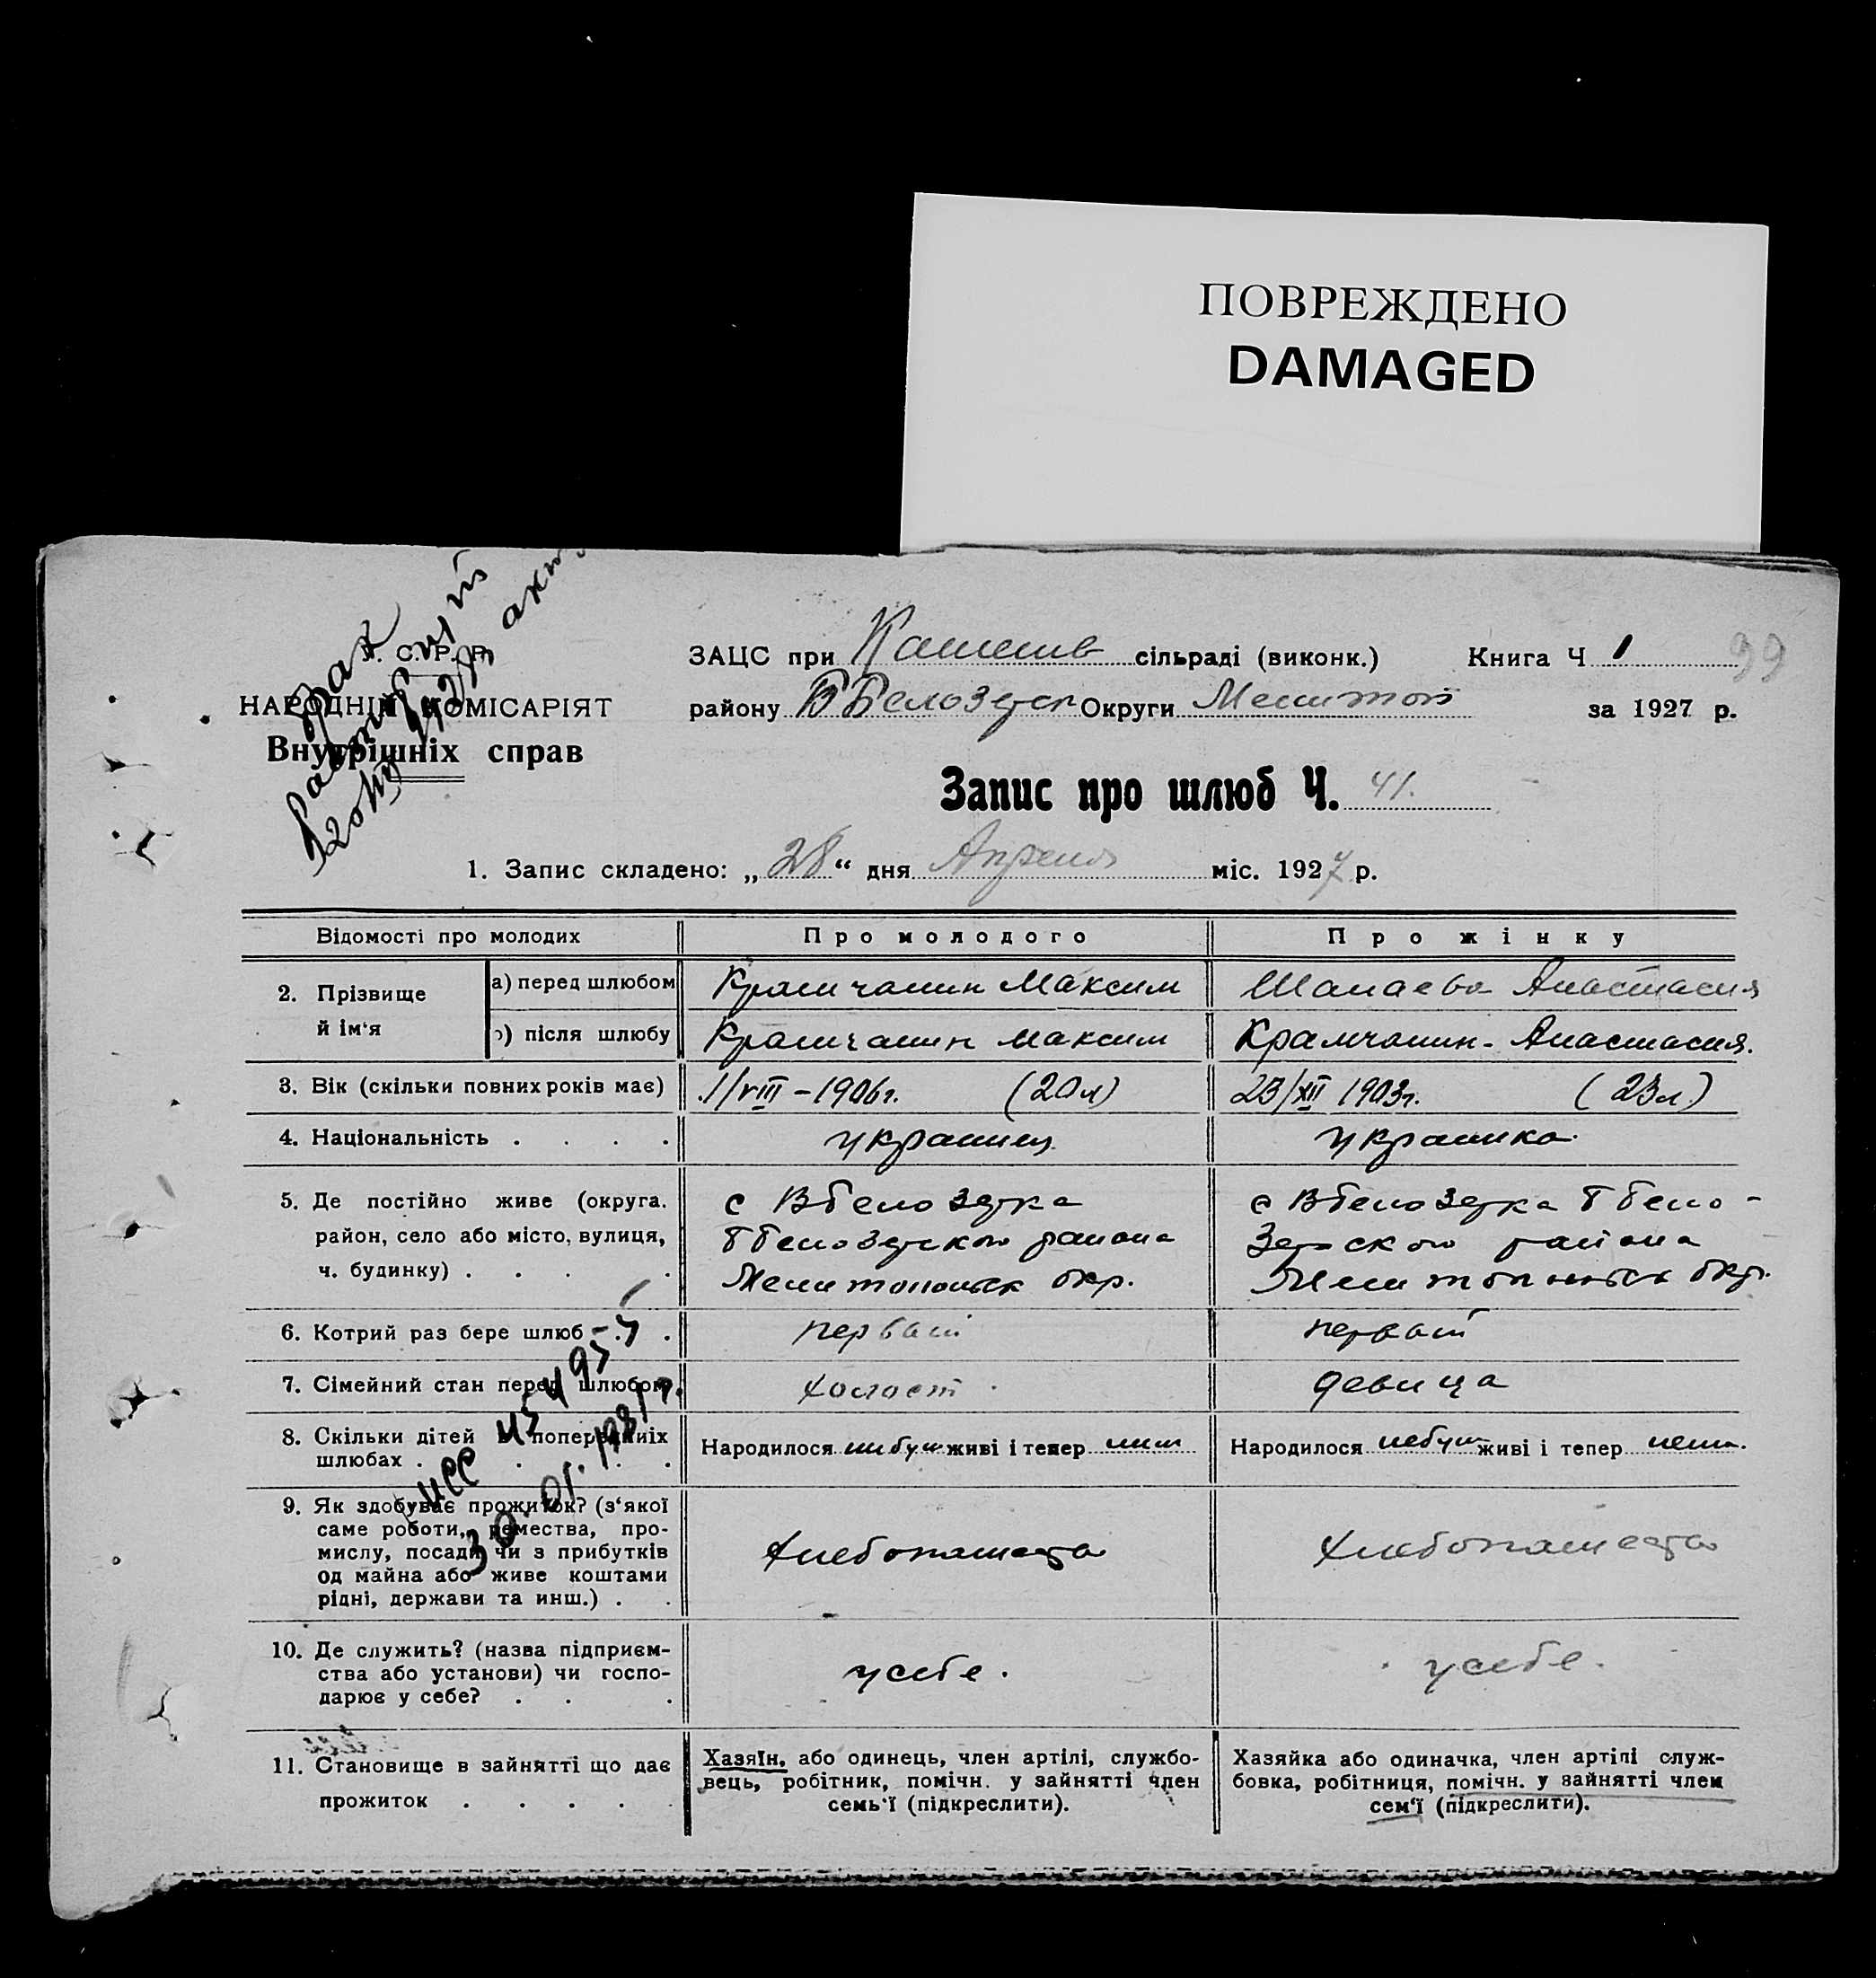 ПОВРЕЖДЕНО
DAMAGED
Брак
У. С. Р. Р.
НАРОДНІЙ КОМІСАРІЯТ
Внутрішніх справ
ЗАЦС при сільраді (виконк.) Книга Ч 1 99
району В Белозерск Округи Мелитоп за 1927 р.
Запис про шлюб Ч. 41.
1. Запис складено: „ 28 “ дня Апреля міс. 1927 р.
Відомості про молодих Про молодого Про жінку
2. Прізвище й ім‘я а) перед шлюбом Крамчанин Максим Шапаева Анастасия
б) після шлюбу Крамчанин Максим Крамчанин - Анастасия.
3. Вік (скільки повних років має) 1/VIII – 1906 г. (20 л) 23/XII 1903 г. (23 л.)
4. Національність . . . . украинец украинка.
5. Де постійно живе (округа. район, село або місто, вулиця, ч. будинку) . . . .
с В белозерка
В белозерского района
Мелитопольск окр.
с В белозерка В бело-
зерского района
Мелитопольск окр.
6. Котрий раз бере шлюб первый первый
7. Сімейний стан перед шлюбом. холост девица
8. Скільки дітей в попередніх шлюбах . . . .
Народилося небул живі і тепер нет
Народилося небул живі і тепер нет.
454955
30.01.1981 г.
9. Як здобуває прожиток? (з‘якої
саме роботи, ремества, про-
мислу, посади чи з прибутків
од майна або живе коштами
рідні, держави та инш.) . .
хлебопашество
хлебопашество
10. Де служить? (назва підприєм-
ства або установи) чи госпо-
дарює у себе? . . .
у себе.
у себе.
11. Становище в зайнятті що дає
прожиток . . . . .
Хазяїн, або одинець, член артілі, службо-
вець, робітник, помічн. у зайнятті член
семь‘ї (підкреслити).
Хазяйка або одиначка, член артілі служ-
бовка, робітниця, помічн. у зайнятті член
сем‘ї (підкреслити).